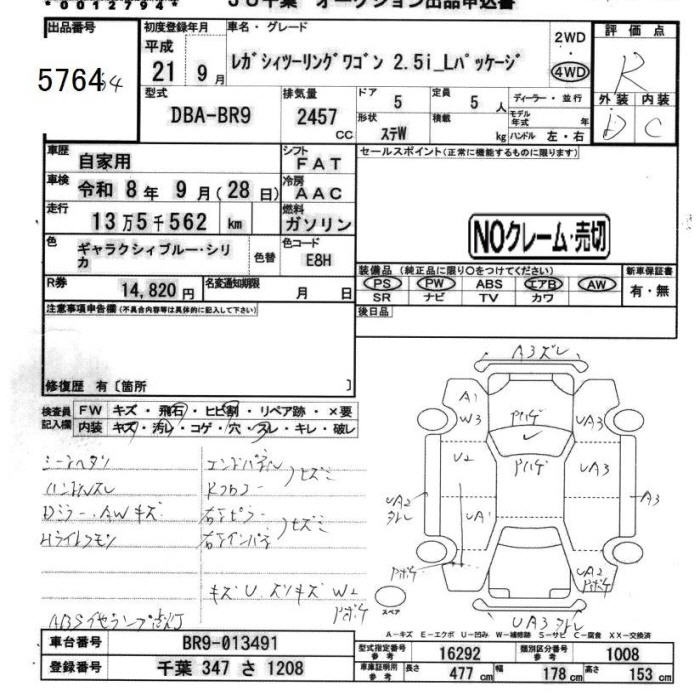 001279 JU千葉 オークション出品申込書
出品番号 初度登録年月 車名・グレード 評価点
57644
平成 21 9月
レガシィツーリングワゴン 2.5i_Lパッケージ
2WD
4WD
R
外装 内装
D C
型式 DBA-BR9
排気量 2457 CC
ドア 5
定員 5 人
ディーラー・並行
形状 ステW
積載 kg
モデル年式 年
ハンドル 左・右
車歴 自家用
シフト FAT
セールスポイント(正常に機能するものに限ります)
車検 令和 8年 9月(28日)
冷房 AAC
走行 13万5千562 km
燃料 ガソリン
NOクレーム・売切
色 ギャラクシィブルー・シリカ
色替
色コード E8H
装備品 (純正品に限り〇をつけてください)
新車保証書
PS PW ABS エアB AW
有・無
SR ナビ TV カワ
R券 14,820円
名変通知期限 月 日
後日品
注意事項申告欄 (不具合内容等は具体的に記入して下さい)
修復歴 有〔箇所 〕
検査員記入欄
FW キズ・飛石・ヒビ割・リペア跡・×要
内装 キズ・汚レ・コゲ・穴・スレ・キレ・破レ
シートヘタリ エンドパネル
ハンドルスレ Rフロアー ヒズミ
Dミラー、AWキズ 右Tピラー
Hライトクモリ 右Tインパネ ヒズミ
キズU スリキズ W2
Pボケ
ABSイセランプ点灯
A3ズレ
A1
W3
Pハゲ
UA3
U2
Pハゲ
UA3
UA2
ズレ
A3
UA1
Pボケ
UA2
Pボケ
スペア
UA3ズレ
A-キズ E-エクボ U-凹み W-補修跡 S-サビ C-腐食 XX-交換済
車台番号 BR9-013491
登録番号 千葉 347 さ 1208
型式指定番号 参考 16292
類別区分番号 参考 1008
車庫証明用 参考 長さ 477 cm 幅 178 cm 高さ 153 cm